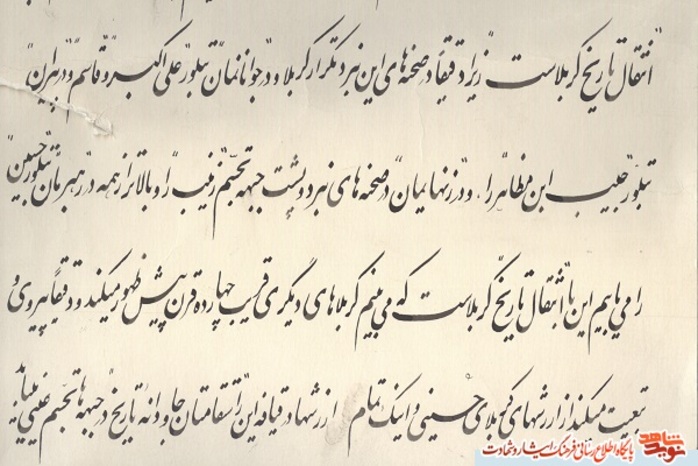 "انتقال تاریخ کربلاست" زیرا دقیقاً در صحنه‌های این نبرد تکرار کربلا و در جوانانمان تبلور "علی اکبر" و "قاسم" و در پیران
تبلور "حبیب ابن مظاهر" را. و در زنهایمان در صحنه‌های نبرد و پشت جبهه تجسّم "زینب" را و بالاتر از همه در رهبرمان تبلور "حسین"
را می‌یابیم این "انتقال تاریخ" کربلاست که می‌بینم کربلاهای دیگری قریب چهارده قرن پیش ظهور میکند و دقیقاً پیروی و
تبعیت میکند از ارزشهای کربلای حسینی و اینک تمام ارزشها در قیافه این "استقامتهای جاودانه تاریخ" در جبهه‌ها تجسّم عینی مییابد
نوید شاهد
پایگاه اطلاع رسانی فرهنگ ایثار و شهادت